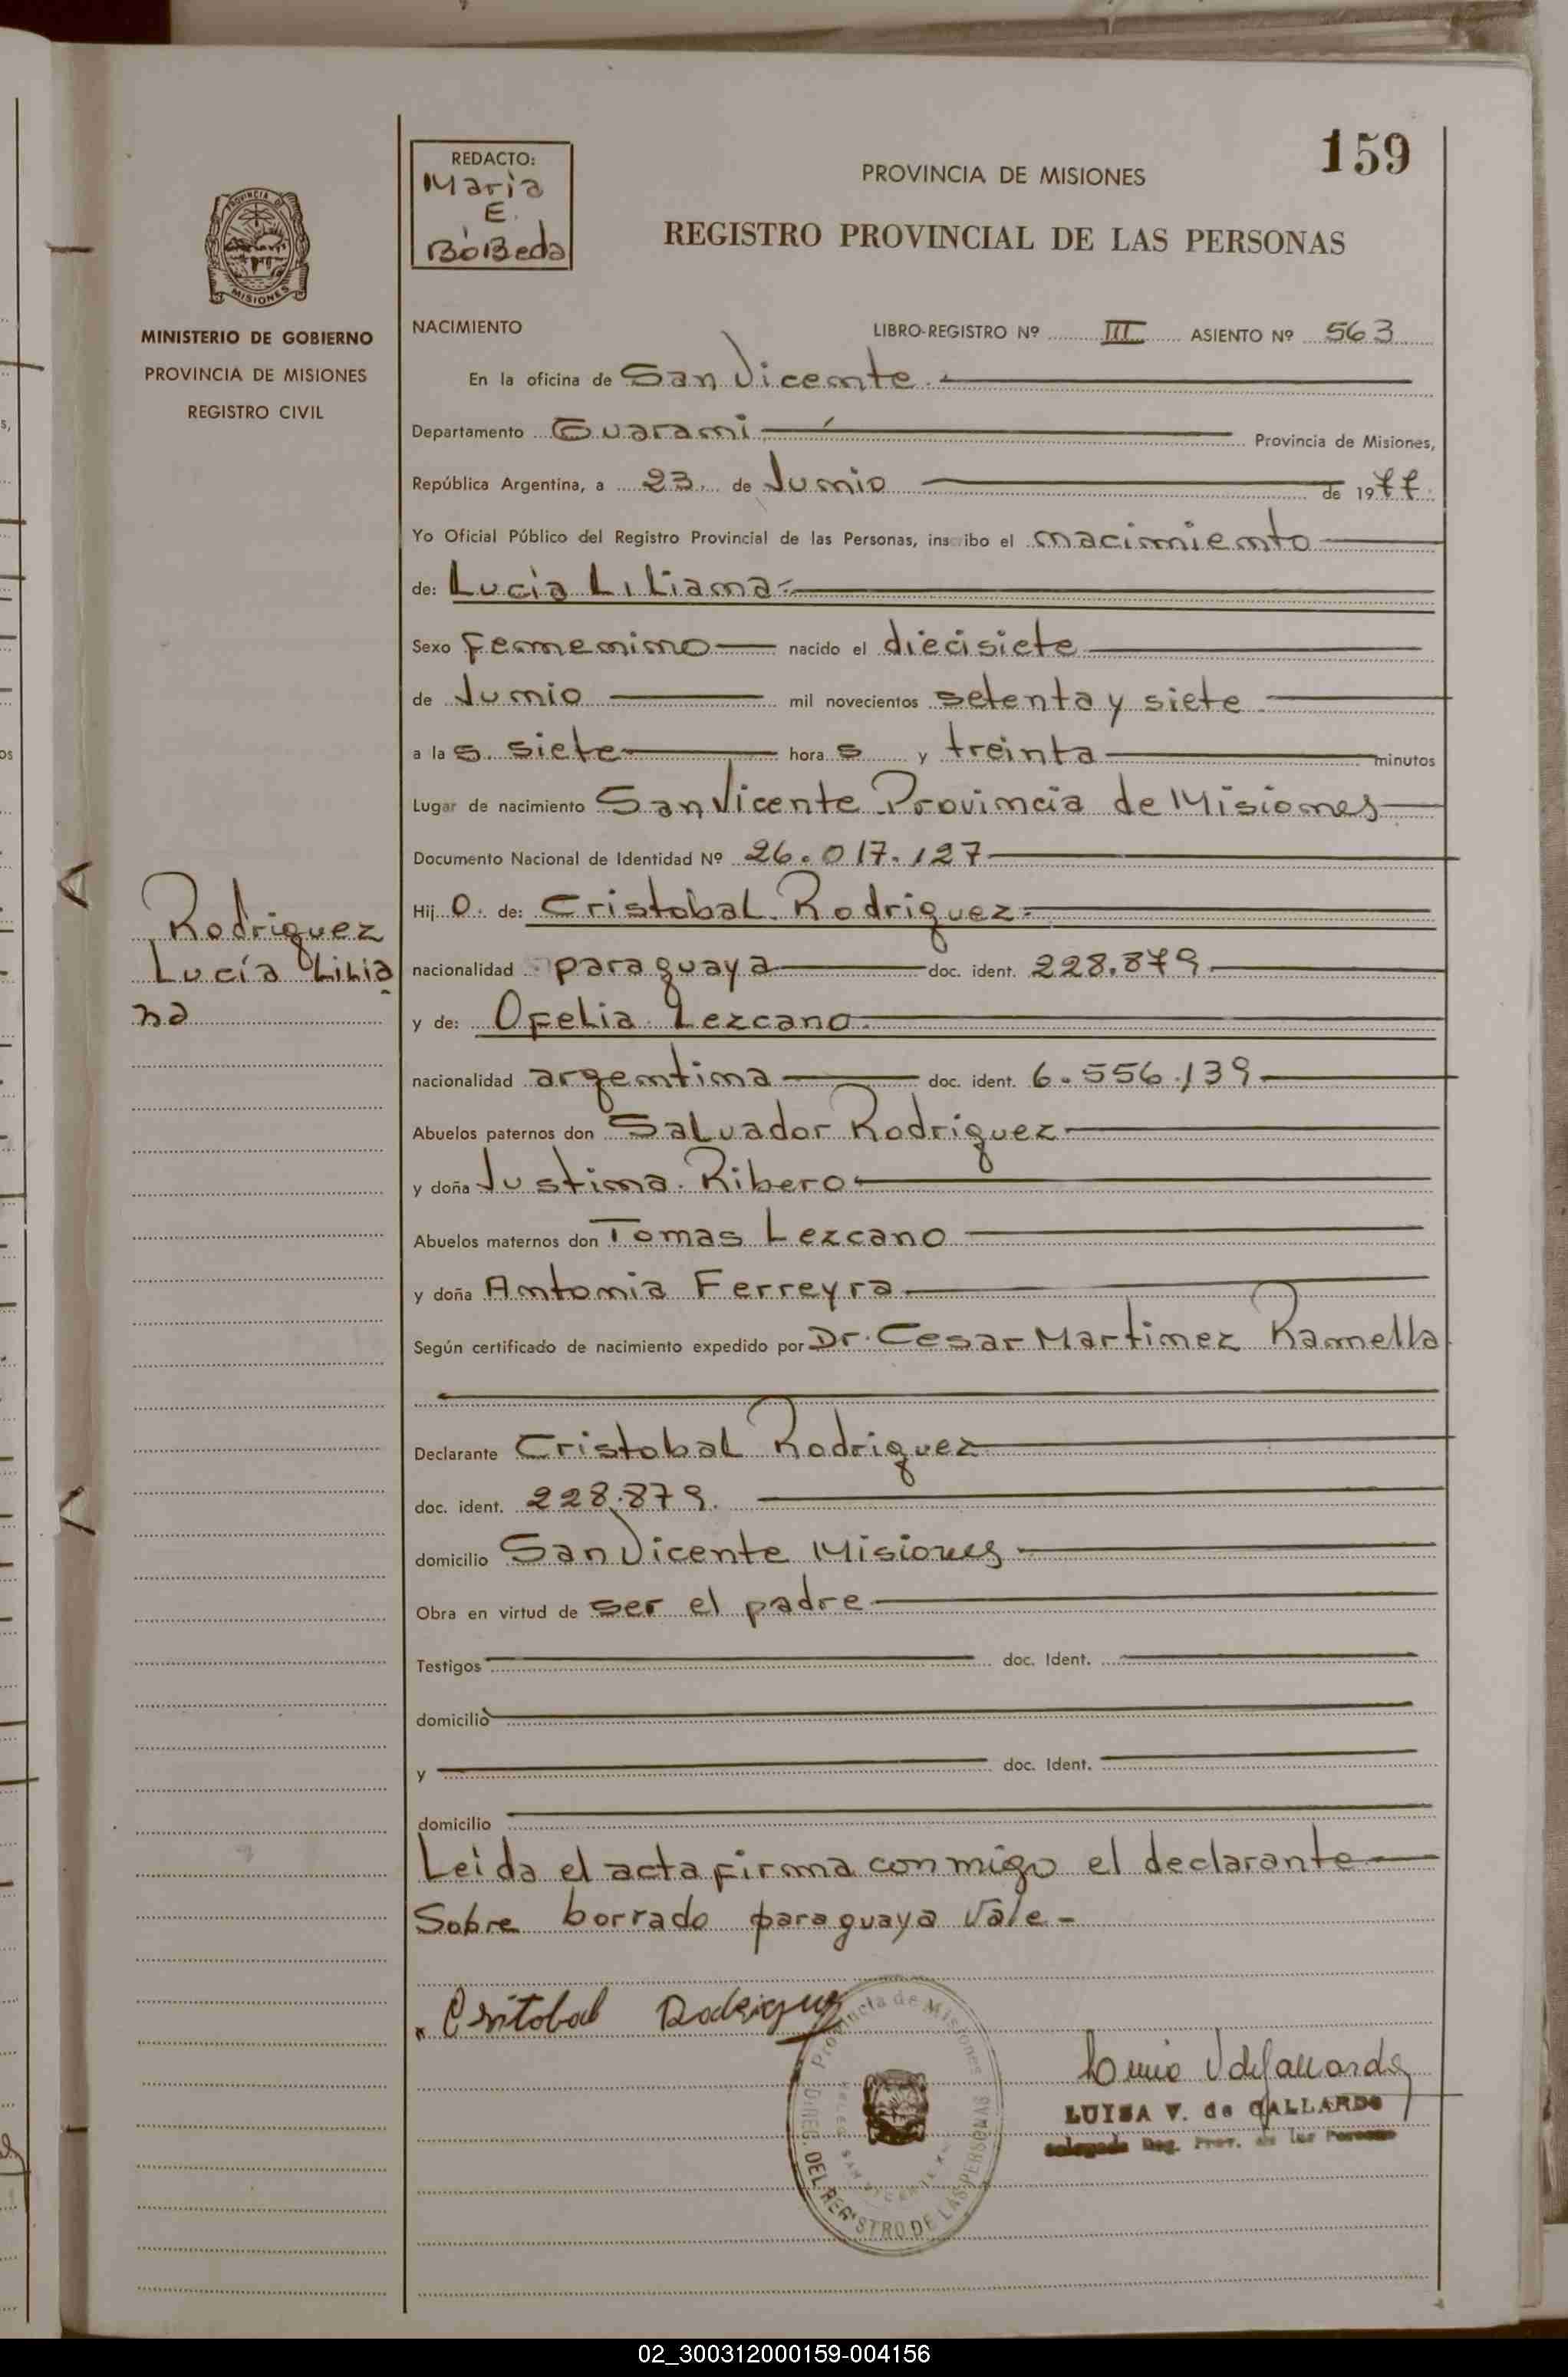 159
REDACTO:
Maria
E.
BóBeda
PROVINCIA DE MISIONES
REGISTRO PROVINCIAL DE LAS PERSONAS
PROVINCIA DE
MISIONES
MINISTERIO DE GOBIERNO
PROVINCIA DE MISIONES
REGISTRO CIVIL
NACIMIENTO LIBRO-REGISTRO Nº III ASIENTO Nº 563
En la oficina de San Vicente.
Departamento Guarani Provincia de Misiones,
República Argentina, a 23 de Junio de 1977.
Yo Oficial Público del Registro Provincial de las Personas, inscribo el nacimiento
de: Lucia Liliana
Sexo femenino nacido el diecisiete
de Junio mil novecientos setenta y siete
a la s. siete hora s y treinta minutos
Lugar de nacimiento San Vicente Provincia de Misiones
Documento Nacional de Identidad Nº 26.017.127
Hij o. de: Cristobal Rodriguez
Rodriguez
Lucía Lilia
na
nacionalidad paraguaya doc. ident. 228.879
y de: Ofelia Lezcano
nacionalidad argentina doc. ident. 6.556.139
Abuelos paternos don Salvador Rodriguez
y doña Justina Ribero
Abuelos maternos don Tomas Lezcano
y doña Antonia Ferreyra
Según certificado de nacimiento expedido por Dr. Cesar Martinez Ramella
Declarante Cristobal Rodriguez
doc. ident. 228.879.
domicilio San Vicente Misiones
Obra en virtud de ser el padre
Testigos doc. Ident.
domicilio
y doc. Ident.
domicilio
Leida el acta firma conmigo el declarante
Sobre borrado paraguaya vale -
Cristobal Rodrigue
Provincia de Misiones
DIREC. DEL REGISTRO DE LAS PERSONAS
LUISA V. de GALLARDO
Delegada Reg. Prov. de las Personas
02_300312000159-004156